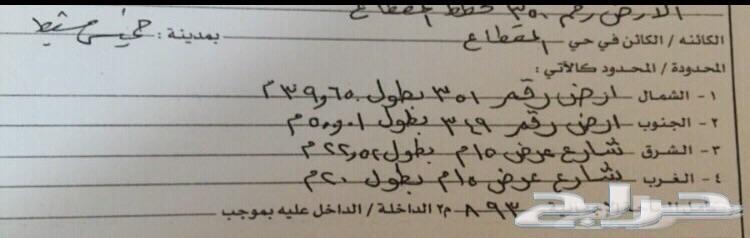 الأرض رقم ٣٥٠ مخطط المقطاع
الكائنه / الكائن في حي المقطاع بمدينة : خميس مشيط
المحدودة / المحدود كالآتي :
١ - الشمال ارض رقم ٣٥١ بطول ٣٩,٦٥ م
٢ - الجنوب ارض رقم ٣٤٩ بطول ٥٠,٠١ م
٣ - الشرق شارع عرض ١٥م بطول ٢٢,٥٢م
٤ - الغرب شارع عرض ١٥م بطول ٢٠م
٨٩٣ م٢ الداخلة / الداخل عليه بموجب
حراج